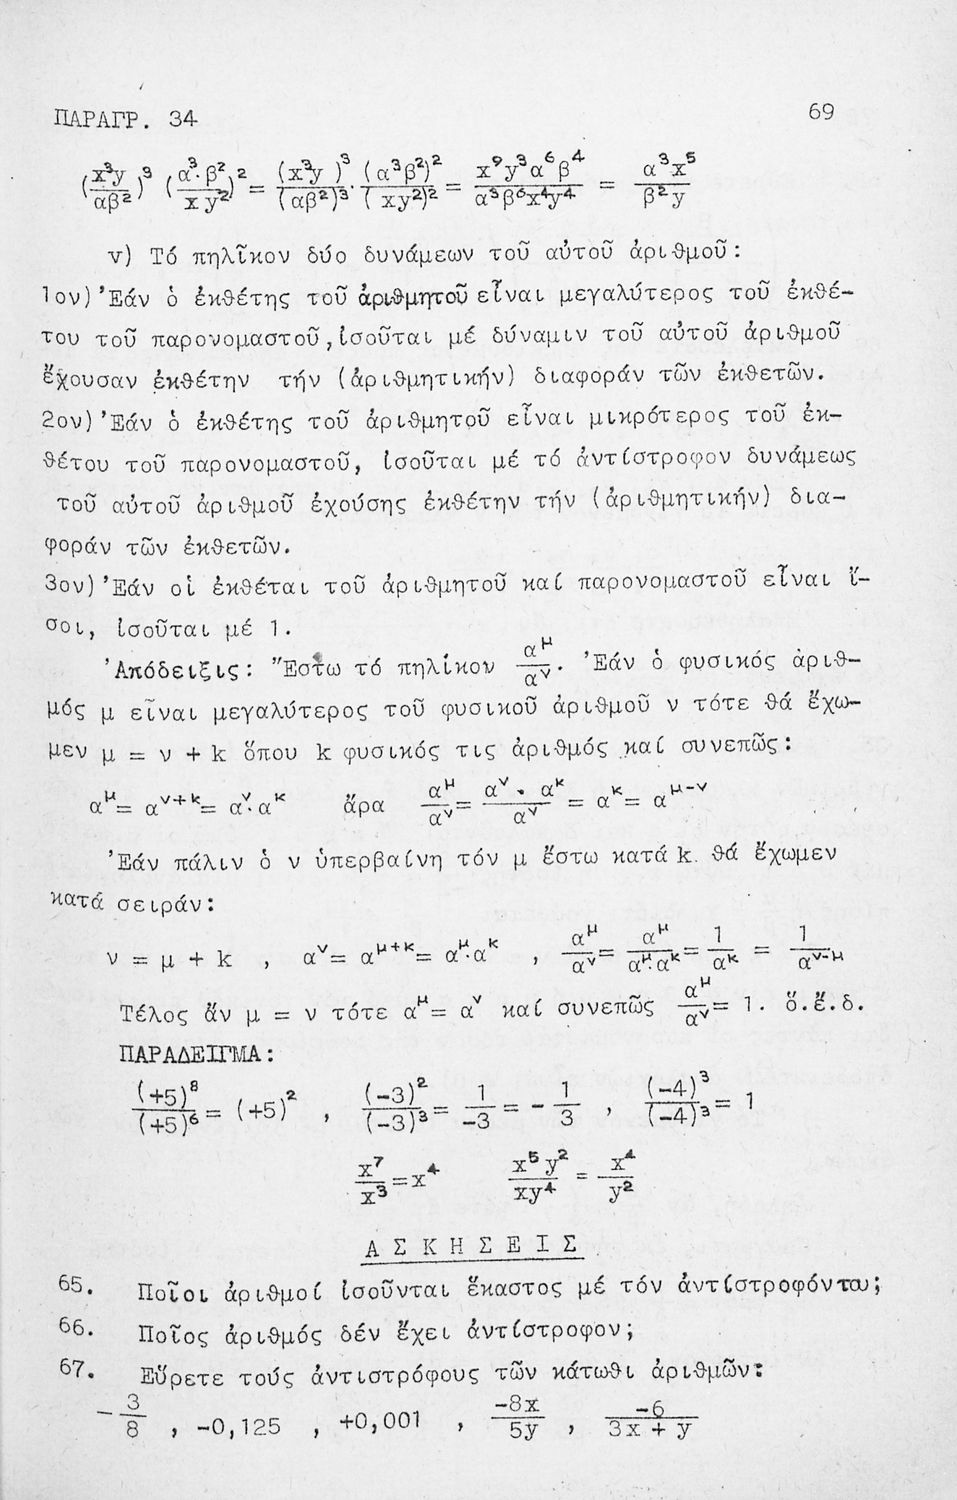 ΠΑΡΑΓΡ. 34 69
(x³y/αβ²)³ (α³·β²/xy²)² = (x³y)³/(αβ²)³ · (α³β²)²/(xy²)² = x⁹y³α⁶β⁴/α³β⁶x⁴y⁴ = α³x⁵/β²y
v) Τό πηλῖκον δύο δυνάμεων τοῦ αὐτοῦ ἀριθμοῦ:
1ον) Ἐάν ὁ ἐκθέτης τοῦ ἀριθμητοῦ εἶναι μεγαλύτερος τοῦ ἐκθέ-
του τοῦ παρονομαστοῦ, ἰσοῦται μέ δύναμιν τοῦ αὐτοῦ ἀριθμοῦ
ἔχουσαν ἐκθέτην τήν (ἀριθμητικήν) διαφοράν τῶν ἐκθετῶν.
2ον) Ἐάν ὁ ἐκθέτης τοῦ ἀριθμητοῦ εἶναι μικρότερος τοῦ ἐκ-
θέτου τοῦ παρονομαστοῦ, ἰσοῦται μέ τό ἀντίστροφον δυνάμεως
τοῦ αὐτοῦ ἀριθμοῦ ἐχούσης ἐκθέτην τήν (ἀριθμητικήν) δια-
φοράν τῶν ἐκθετῶν.
3ον) Ἐάν οἱ ἐκθέται τοῦ ἀριθμητοῦ καί παρονομαστοῦ εἶναι ἴ-
σοι, ἰσοῦται μέ 1.
Ἀπόδειξις: Ἔστω τό πηλίκον α^μ/α^ν. Ἐάν ὁ φυσικός ἀριθ-
μός μ εἶναι μεγαλύτερος τοῦ φυσικοῦ ἀριθμοῦ ν τότε θά ἔχω-
μεν μ = ν + k ὅπου k φυσικός τις ἀριθμός καί συνεπῶς:
α^μ = α^(ν+κ) = α^ν·α^κ ἄρα α^μ/α^ν = α^ν·α^κ/α^ν = α^κ = α^(μ-ν)
Ἐάν πάλιν ὁ ν ὑπερβαίνη τόν μ ἔστω κατά k. θά ἔχωμεν
κατά σειράν:
ν = μ + k , α^ν = α^(μ+κ) = α^μ·α^κ , α^μ/α^ν = α^μ/α^μ·α^κ = 1/α^κ = 1/α^(ν-μ)
Τέλος ἄν μ = ν τότε α^μ = α^ν καί συνεπῶς α^μ/α^ν = 1. ὅ.ἔ.δ.
ΠΑΡΑΔΕΙΓΜΑ:
(+5)⁸/(+5)⁶ = (+5)² , (-3)²/(-3)³ = 1/-3 = - 1/3 , (-4)³/(-4)³ = 1
x⁷/x³ = x⁴ x⁵y²/xy⁴ = x⁴/y²
ΑΣΚΗΣΕΙΣ
65. Ποῖοι ἀριθμοί ἰσοῦνται ἕκαστος μέ τόν ἀντίστροφόν του;
66. Ποῖος ἀριθμός δέν ἔχει ἀντίστροφον;
67. Εὕρετε τούς ἀντιστρόφους τῶν κάτωθι ἀριθμῶν:
-3/8 , -0,125 , +0,001 , -8x/5y , -6/3x + y